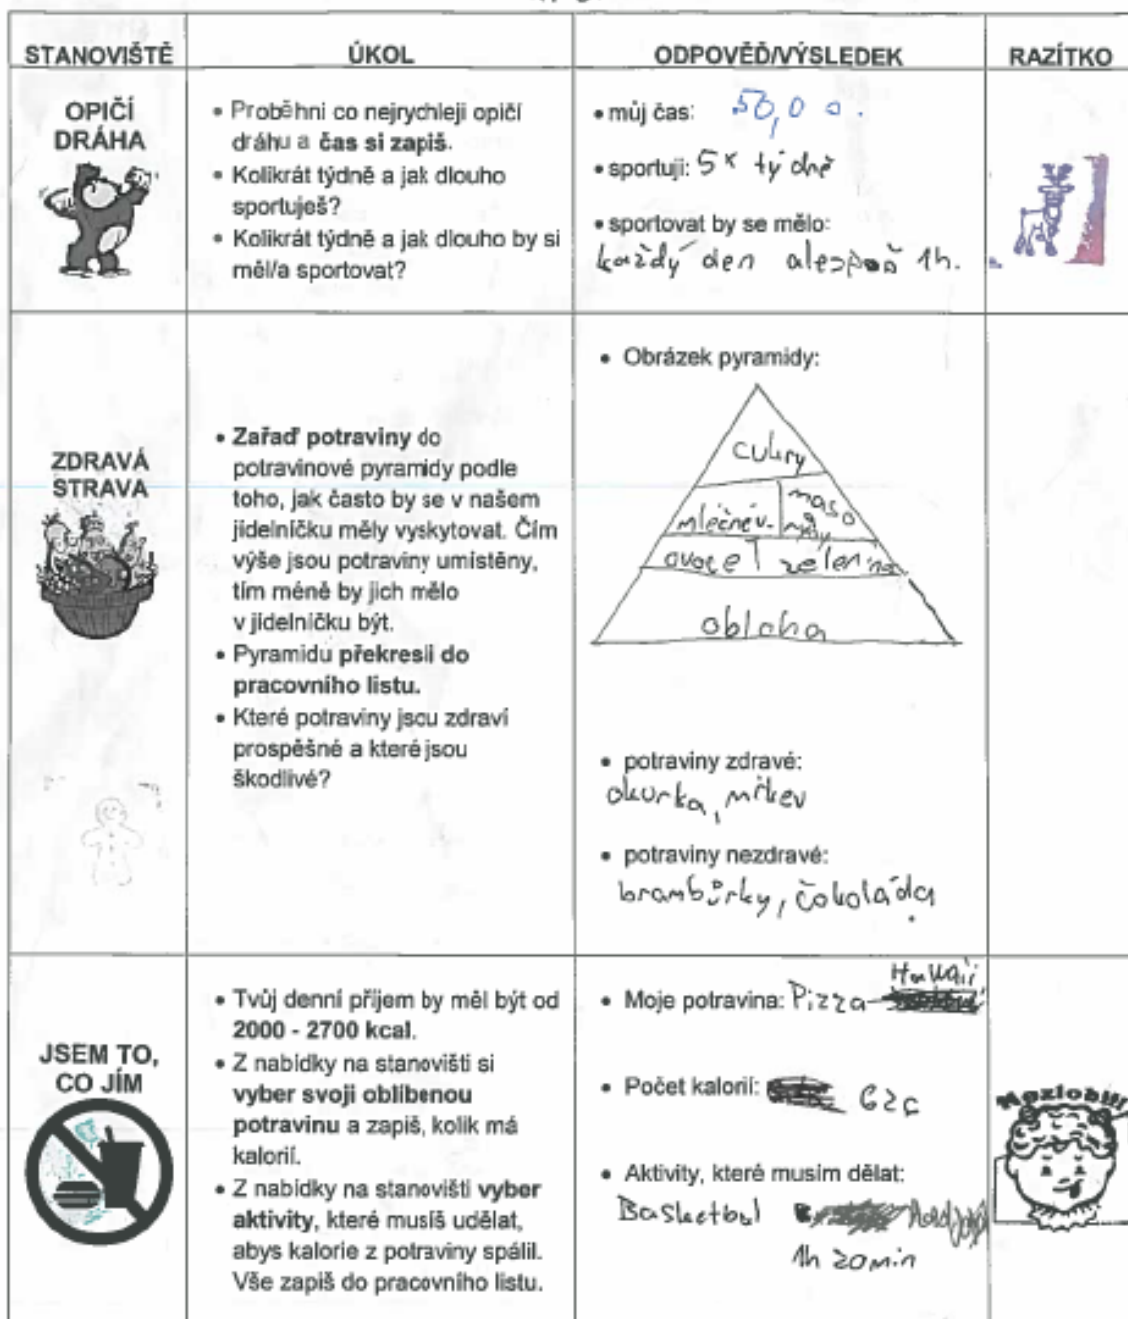 STANOVIŠTĚ ÚKOL ODPOVĚĎ/VÝSLEDEK RAZÍTKO
OPIČÍ
DRÁHA
• Proběhni co nejrychleji opičí
dráhu a čas si zapiš.
• Kolikrát týdně a jak dlouho
sportuješ?
• Kolikrát týdně a jak dlouho by si
měl/a sportovat?
• můj čas: 50,0
• sportuji: 5x týdně
• sportovat by se mělo:
každý den alespoň 1h.
ZDRAVÁ
STRAVA
• Zařaď potraviny do
potravinové pyramidy podle
toho, jak často by se v našem
jídelníčku měly vyskytovat. Čím
výše jsou potraviny umístěny,
tím méně by jich mělo
v jídelníčku být.
• Pyramidu překresli do
pracovního listu.
• Které potraviny jsou zdraví
prospěšné a které jsou
škodlivé?
• Obrázek pyramidy:
cukry
mléčné v. maso
ovoce zelenina
obloha
• potraviny zdravé:
okurka, mrkev
• potraviny nezdravé:
brambůrky, čokoláda
JSEM TO,
CO JÍM
• Tvůj denní příjem by měl být od
2000 - 2700 kcal.
• Z nabídky na stanovišti si
vyber svoji oblíbenou
potravinu a zapiš, kolik má
kalorií.
• Z nabídky na stanovišti vyber
aktivity, které musíš udělat,
abys kalorie z potraviny spálil.
Vše zapiš do pracovního listu.
• Moje potravina: Pizza Hawaii
• Počet kalorií:
• Aktivity, které musím dělat:
Basketbal
1h 20min
Nezlobil!